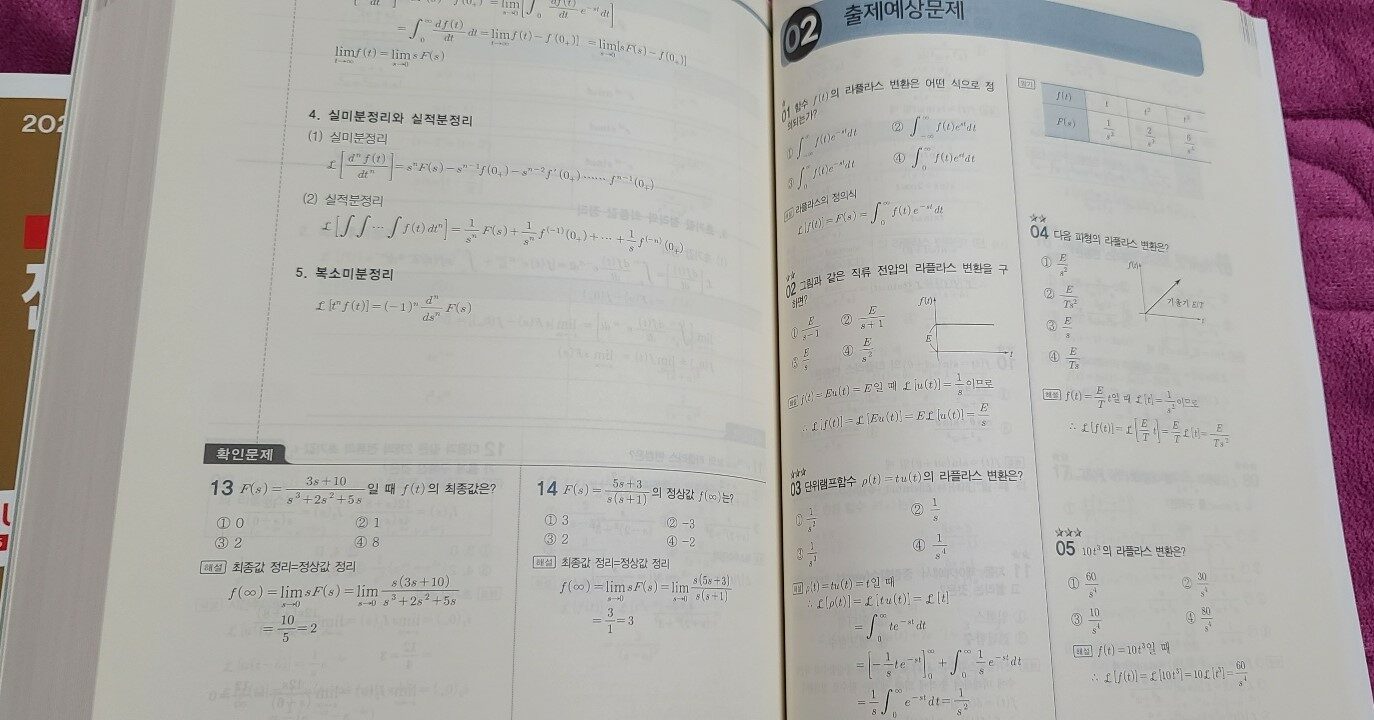 = ∫₀^∞ df(t)/dt dt = lim_{t→∞} f(t) − f(0₊)] = lim_{s→0} [sF(s) − f(0₊)]
lim_{t→∞} f(t) = lim_{s→0} s F(s)
4. 실미분정리와 실적분정리
(1) 실미분정리
ℒ[dⁿ f(t)/dtⁿ] = sⁿF(s) − sⁿ⁻¹f(0₊) − sⁿ⁻²f′(0₊) ⋯⋯ fⁿ⁻¹(0₊)
(2) 실적분정리
ℒ[∫∫⋯∫ f(t) dtⁿ] = 1/sⁿ F(s) + 1/sⁿ f⁽⁻¹⁾(0₊) + ⋯ + 1/s f⁽⁻ⁿ⁾(0₊)
5. 복소미분정리
ℒ[tⁿf(t)] = (−1)ⁿ dⁿ/dsⁿ F(s)
확인문제
13 F(s) = (3s+10)/(s³+2s²+5s) 일 때 f(t)의 최종값은?
① 0 ② 1
③ 2 ④ 8
해설 최종값 정리=정상값 정리
f(∞) = lim_{s→0} sF(s) = lim_{s→0} s(3s+10)/(s³+2s²+5s)
= 10/5 = 2
14 F(s) = (5s+3)/(s(s+1)) 의 정상값 f(∞)는?
① 3 ② −3
③ 2 ④ −2
해설 최종값 정리=정상값 정리
f(∞) = lim_{s→0} sF(s) = lim_{s→0} s(5s+3)/(s(s+1))
= 3/1 = 3
02 출제예상문제
★
01 함수 f(t)의 라플라스 변환은 어떤 식으로 정
의되는가?
① ∫₋∞^∞ f(t)e⁻ˢᵗdt ② ∫₋∞^∞ f(t)eˢᵗdt
③ ∫₀^∞ f(t)e⁻ˢᵗdt ④ ∫₀^∞ f(t)eˢᵗdt
해설 라플라스의 정의식
ℒ[f(t)] = F(s) = ∫₀^∞ f(t) e⁻ˢᵗ dt
★★
02 그림과 같은 직류 전압의 라플라스 변환을 구
하면?
① E/(s−1) ② E/(s+1)
③ E/s ④ E/s²
f(t)
E
t
해설 f(t) = Eu(t) = E일 때 ℒ[u(t)] = 1/s 이므로
∴ ℒ[f(t)] = ℒ[Eu(t)] = Eℒ[u(t)] = E/s
★★★
03 단위램프함수 ρ(t) = tu(t)의 라플라스 변환은?
① 1/s² ② 1/s
③ 1/s³ ④ 1/s⁴
해설 ρ(t) = tu(t) = t일 때
∴ ℒ[ρ(t)] = ℒ[tu(t)] = ℒ[t]
= ∫₀^∞ te⁻ˢᵗdt
= [−1/s te⁻ˢᵗ]₀^∞ + ∫₀^∞ 1/s e⁻ˢᵗdt
= 1/s ∫₀^∞ e⁻ˢᵗdt = 1/s²
f(t) t t² t³
F(s) 1/s² 2/s³ 6/s⁴
★★
04 다음 파형의 라플라스 변환은?
① E/s²
② E/Ts²
③ E/s
④ E/Ts
f(t)
기울기 E/T
t
해설 f(t) = E/T t일 때 ℒ[t] = 1/s² 이므로
∴ ℒ[f(t)] = ℒ[E/T t] = E/T ℒ[t] = E/Ts²
★★★
05 10t³의 라플라스 변환은?
① 60/s⁴ ② 30/s⁴
③ 10/s⁴ ④ 80/s⁴
해설 f(t) = 10t³일 때
∴ ℒ[f(t)] = ℒ[10t³] = 10ℒ[t³] = 60/s⁴